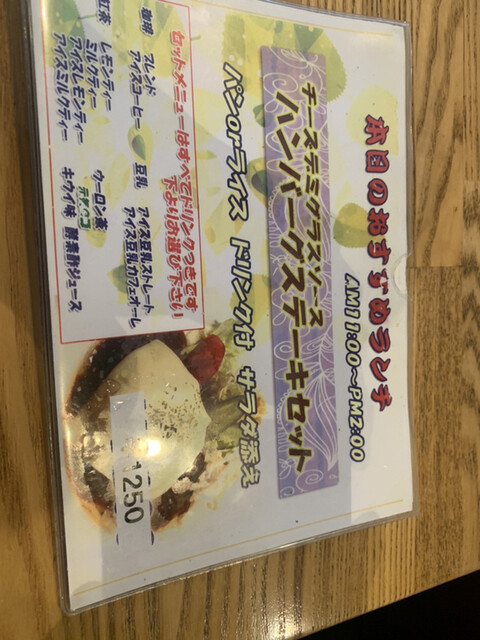 本日のおすすめランチ
AM11:00~PM2:00
チーズデミグラスソース
ハンバーグステーキセット
パンorライス ドリンク付 サラダ添え
セットメニューはすべてドリンクつきです
下よりお選び下さい
珈琲 ブレンド 豆乳 アイス豆乳ストレート
アイスコーヒー アイス豆乳カフェオーレ
紅茶 レモンティー ウーロン茶
ミルクティー
アイスレモンティー キウイ味 酵素酢ジュース
アイスミルクティー
1250